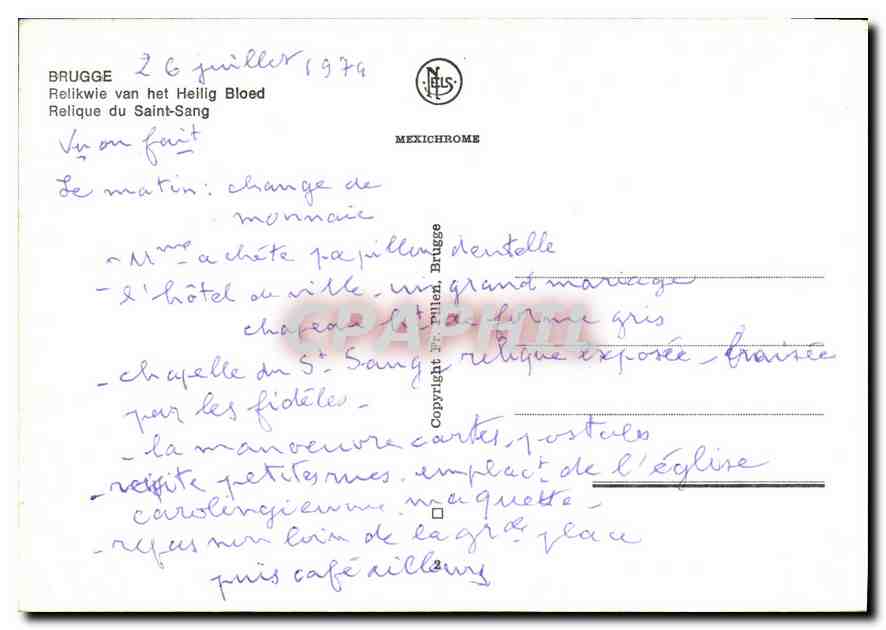 BRUGGE 26 juillet 1974
Relikwie van het Heilig Bloed
Relique du Saint-Sang
NELS
MEXICHROME
Vu ou fait
Le matin : change de
monnaie
- Mme achète papillon dentelle
- l'hôtel de ville - un grand mariage
chapeau ht de forme gris
- chapelle du St Sang - relique exposée - baisée
par les fidèles -
- la manoeuvre cartes postales
- visite petites rues - emplact de l'église
carolingienne maquette -
- repas non loin de la grde place
puis café ailleurs
Copyright Fr. Pillen, Brugge
2
CPAPHIL